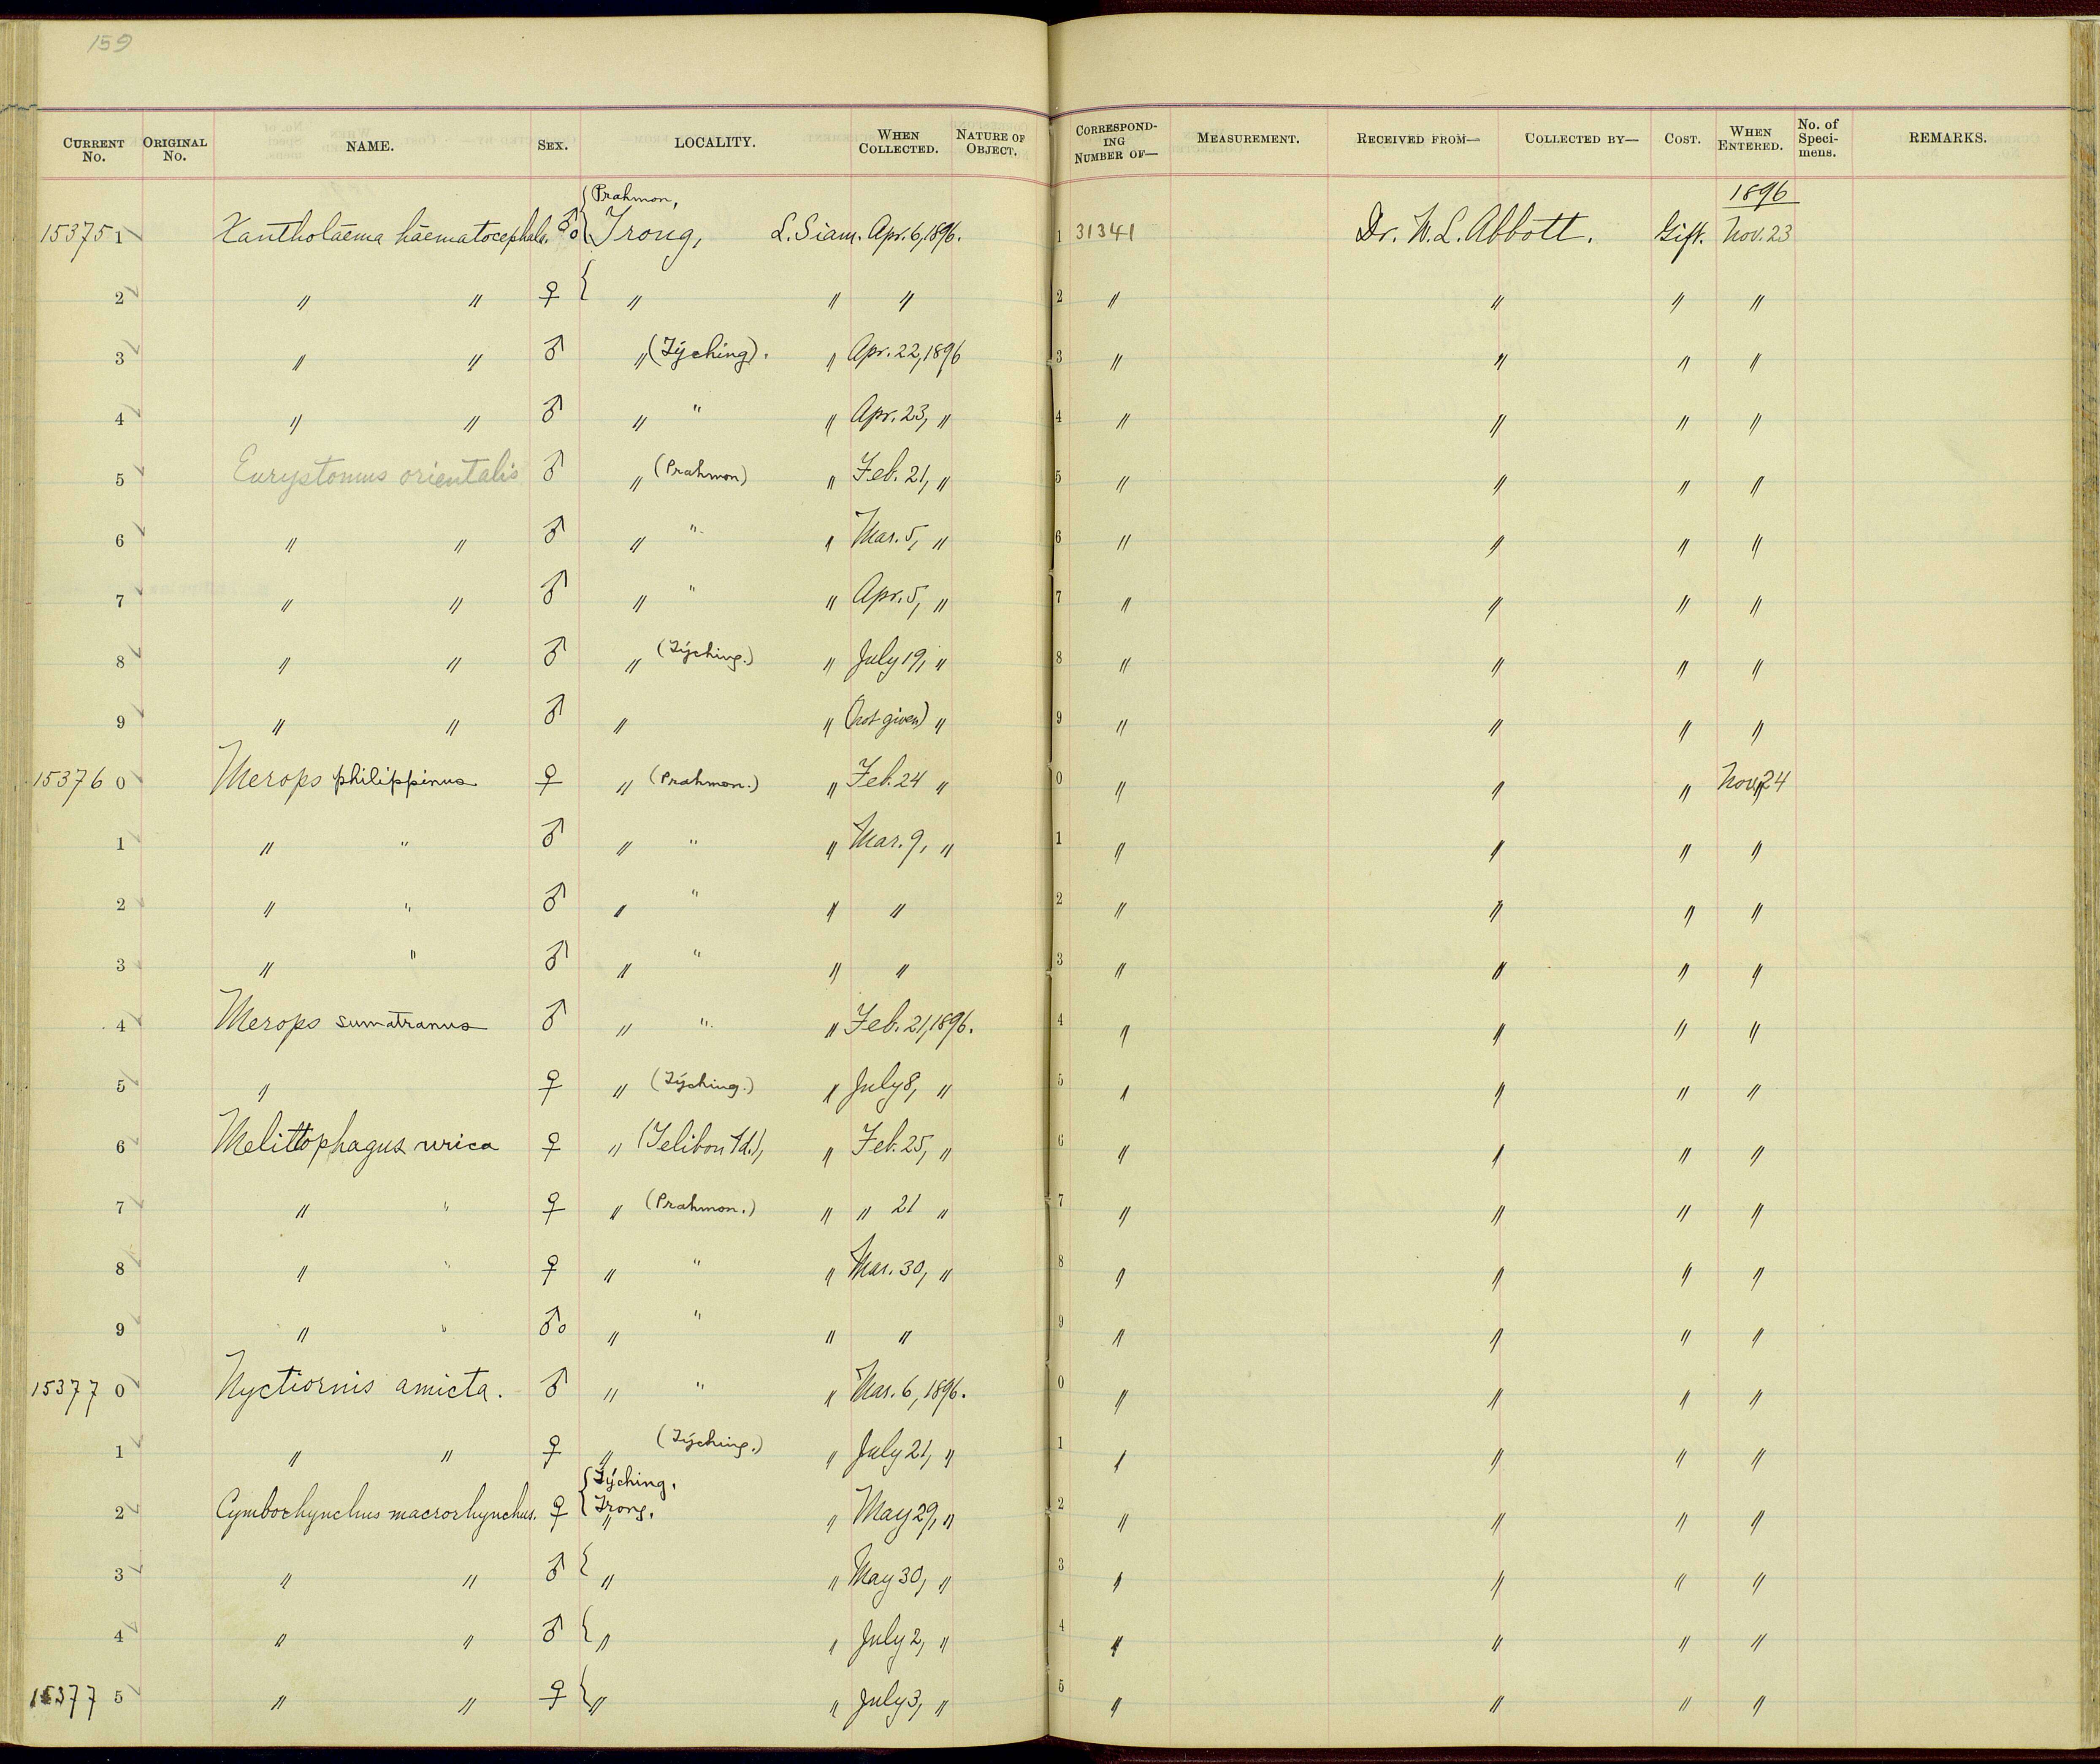 159
CURRENT No. ORIGINAL No. NAME. SEX. LOCALITY. WHEN COLLECTED. NATURE OF OBJECT. CORRESPONDING NUMBER OF— MEASUREMENT. RECEIVED FROM— COLLECTED BY— COST. WHEN ENTERED. No. of Specimens. REMARKS.
{Prahmon, 1896
153751 Xantholaema haematocephala. ♂o {Trong, L. Siam. Apr. 6, 1896. 1 31341 Dr. W. L. Abbott. Gift. Nov. 23
2 〃 〃 ♀ { 〃 〃 〃 2 〃 〃 〃 〃
3 〃 〃 ♂ 〃 (Tyching). 〃 Apr. 22, 1896 3 〃 〃 〃 〃
4 〃 〃 ♂ 〃 " 〃 Apr. 23, 〃 4 〃 〃 〃 〃
5 Eurystomus orientalis ♂ 〃 (Prahmon) 〃 Feb. 21, 〃 5 〃 〃 〃 〃
6 〃 〃 ♂ 〃 " 〃 Mar. 5, 〃 6 〃 〃 〃 〃
7 〃 〃 ♂ 〃 " 〃 Apr. 5, 〃 7 〃 〃 〃 〃
8 〃 〃 ♂ 〃 (Tyching.) 〃 July 19, 〃 8 〃 〃 〃 〃
9 〃 〃 ♂ 〃 〃 (not given) 〃 9 〃 〃 〃 〃
153760 Merops philippinus ♀ 〃 (Prahmon.) 〃 Feb. 24 〃 0 〃 〃 〃 Nov. 24
1 〃 " ♂ 〃 " 〃 Mar. 9, 〃 1 〃 〃 〃 〃
2 〃 " ♂ 〃 " 〃 〃 2 〃 〃 〃 〃
3 〃 " ♂ 〃 " 〃 〃 3 〃 〃 〃 〃
4 Merops sumatranus ♂ 〃 " 〃 Feb. 21, 1896. 4 〃 〃 〃 〃
5 〃 ♀ 〃 (Tyching.) 〃 July 8, 〃 5 〃 〃 〃 〃
6 Melittophagus urica ♀ 〃 (Telibon Id.), 〃 Feb. 25, 〃 6 〃 〃 〃 〃
7 〃 " ♀ 〃 (Prahmon.) 〃 〃 21 〃 7 〃 〃 〃 〃
8 〃 " ♀ 〃 " 〃 Mar. 30, 〃 8 〃 〃 〃 〃
9 〃 " ♂o 〃 " 〃 〃 9 〃 〃 〃 〃
153770 Nyctiornis amicta. ♂ 〃 " 〃 Mar. 6, 1896. 0 〃 〃 〃 〃
1 〃 〃 ♀ 〃 (Tyching.) 〃 July 21, 〃 1 〃 〃 〃 〃
{Tyching,
2 Cymborhynchus macrorhynchus. ♀ {Trong. 〃 〃 May 29, 〃 2 〃 〃 〃 〃
3 〃 〃 ♂ { 〃 〃 May 30, 〃 3 〃 〃 〃 〃
4 〃 〃 ♂ { 〃 〃 July 2, 〃 4 〃 〃 〃 〃
153775 〃 〃 ♀ { 〃 〃 July 3, 〃 5 〃 〃 〃 〃